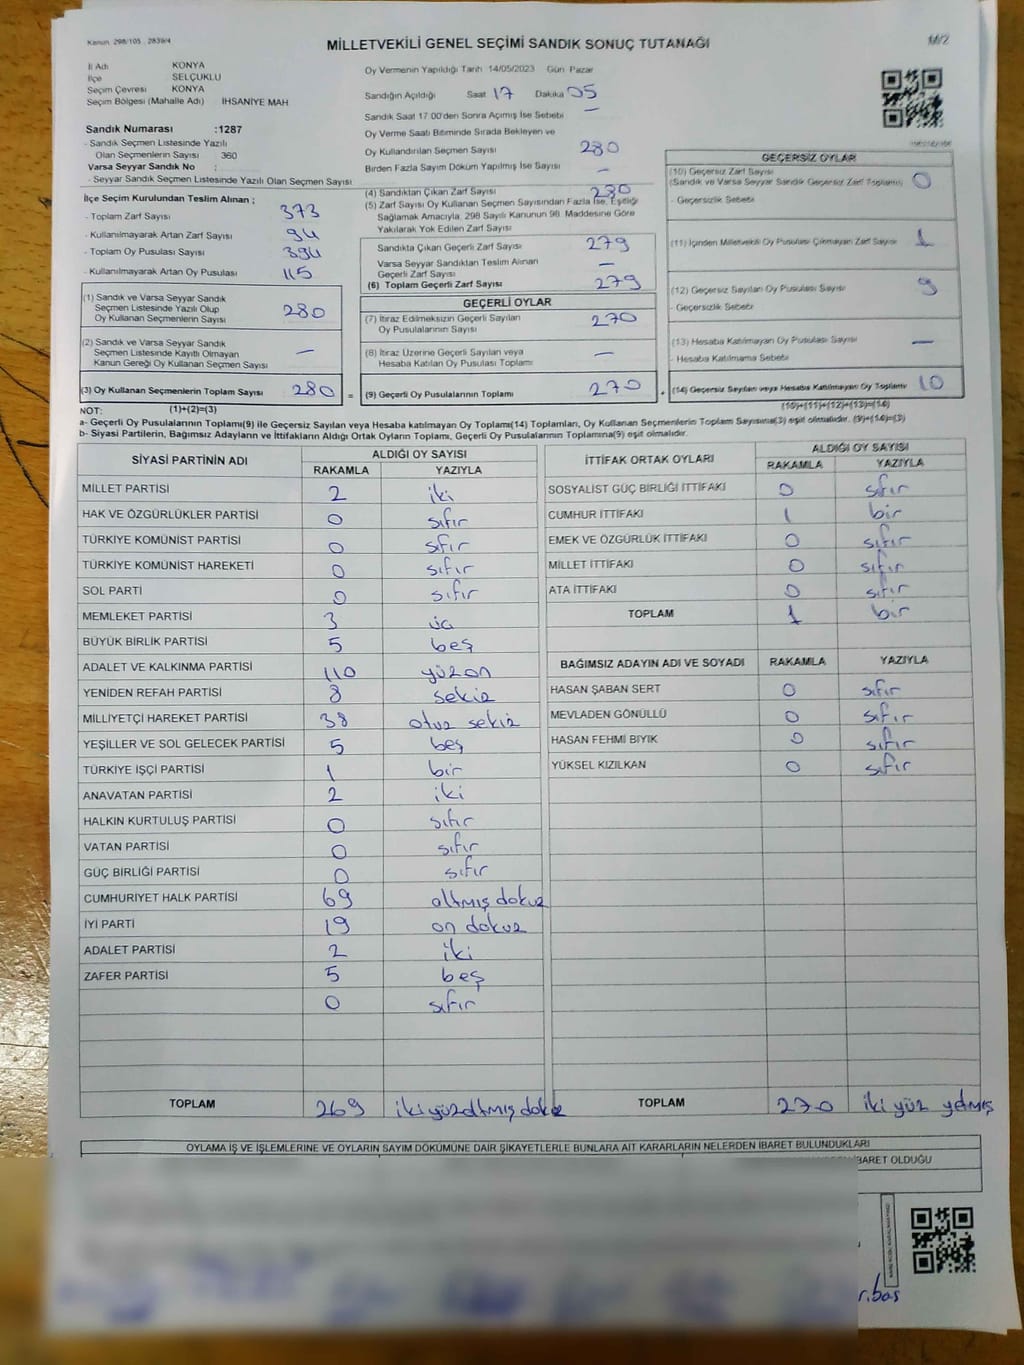 Kanun: 298/105 , 2839/4
MİLLETVEKİLİ GENEL SEÇİMİ SANDIK SONUÇ TUTANAĞI
M/2
İl Adı KONYA
İlçe SELÇUKLU
Seçim Çevresi KONYA
Seçim Bölgesi (Mahalle Adı) İHSANİYE MAH
Sandık Numarası :1287
- Sandık Seçmen Listesinde Yazılı
Olan Seçmenlerin Sayısı 360
Varsa Seyyar Sandık No :
- Seyyar Sandık Seçmen Listesinde Yazılı Olan Seçmen Sayısı
İlçe Seçim Kurulundan Teslim Alınan ;
- Toplam Zarf Sayısı 373
- Kullanılmayarak Artan Zarf Sayısı 94
- Toplam Oy Pusulası Sayısı 394
- Kullanılmayarak Artan Oy Pusulası 115
(1) Sandık ve Varsa Seyyar Sandık
Seçmen Listesinde Yazılı Olup
Oy Kullanan Seçmenlerin Sayısı 280
(2) Sandık ve Varsa Seyyar Sandık
Seçmen Listesinde Kayıtlı Olmayan
Kanun Gereği Oy Kullanan Seçmen Sayısı —
(3) Oy Kullanan Seçmenlerin Toplam Sayısı 280
Oy Vermenin Yapıldığı Tarih 14/05/2023 Gün Pazar
Sandığın Açıldığı Saat 17 Dakika 05
Sandık Saat 17.00'den Sonra Açımış İse Sebebi —
Oy Verme Saati Bitiminde Sırada Bekleyen ve
Oy Kullandırılan Seçmen Sayısı 280
Birden Fazla Sayım Döküm Yapılmış İse Sayısı —
(4) Sandıktan Çıkan Zarf Sayısı 280
(5) Zarf Sayısı Oy Kullanan Seçmen Sayısından Fazla İse, Eşitliği
Sağlamak Amacıyla, 298 Sayılı Kanunun 98. Maddesine Göre
Yakılarak Yok Edilen Zarf Sayısı
Sandıkta Çıkan Geçerli Zarf Sayısı 279
Varsa Seyyar Sandıktan Teslim Alınan
Geçerli Zarf Sayısı —
(6) Toplam Geçerli Zarf Sayısı 279
GEÇERLİ OYLAR
(7) İtiraz Edilmeksizin Geçerli Sayılan
Oy Pusulalarının Sayısı 270
(8) İtiraz Üzerine Geçerli Sayılan veya
Hesaba Katılan Oy Pusulası Toplamı —
= (9) Geçerli Oy Pusulalarının Toplamı 270
GEÇERSİZ OYLAR
(10) Geçersiz Zarf Sayısı
(Sandık ve Varsa Seyyar Sandık Geçersiz Zarf Toplamı) 0
- Geçersizlik Sebebi
(11) İçinden Milletvekili Oy Pusulası Çıkmayan Zarf Sayısı 1
(12) Geçersiz Sayılan Oy Pusulası Sayısı 9
- Geçersizlik Sebebi
(13) Hesaba Katılmayan Oy Pusulası Sayısı —
- Hesaba Katılmama Sebebi
+ (14) Geçersiz Sayılan veya Hesaba Katılmayan Oy Toplamı 10
NOT: (1)+(2)=(3) (10)+(11)+(12)+(13)=(14)
a- Geçerli Oy Pusulalarının Toplamı(9) ile Geçersiz Sayılan veya Hesaba katılmayan Oy Toplamı(14) Toplamları, Oy Kullanan Seçmenlerin Toplam Sayısına(3) eşit olmalıdır. (9)+(14)=(3)
b- Siyasi Partilerin, Bağımsız Adayların ve İttifakların Aldığı Ortak Oyların Toplamı, Geçerli Oy Pusulalarının Toplamına(9) eşit olmalıdır.
SİYASİ PARTİNİN ADI ALDIĞI OY SAYISI
RAKAMLA YAZIYLA
MİLLET PARTİSİ 2 iki
HAK VE ÖZGÜRLÜKLER PARTİSİ 0 sıfır
TÜRKİYE KOMÜNİST PARTİSİ 0 sıfır
TÜRKİYE KOMÜNİST HAREKETİ 0 sıfır
SOL PARTİ 0 sıfır
MEMLEKET PARTİSİ 3 üç
BÜYÜK BİRLİK PARTİSİ 5 beş
ADALET VE KALKINMA PARTİSİ 110 yüzon
YENİDEN REFAH PARTİSİ 8 sekiz
MİLLİYETÇİ HAREKET PARTİSİ 38 otuz sekiz
YEŞİLLER VE SOL GELECEK PARTİSİ 5 beş
TÜRKİYE İŞÇİ PARTİSİ 1 bir
ANAVATAN PARTİSİ 2 iki
HALKIN KURTULUŞ PARTİSİ 0 sıfır
VATAN PARTİSİ 0 sıfır
GÜÇ BİRLİĞİ PARTİSİ 0 sıfır
CUMHURİYET HALK PARTİSİ 69 altmış dokuz
İYİ PARTİ 19 on dokuz
ADALET PARTİSİ 2 iki
ZAFER PARTİSİ 5 beş
0 sıfır
TOPLAM 269 iki yüzaltmış dokuz
İTTİFAK ORTAK OYLARI ALDIĞI OY SAYISI
RAKAMLA YAZIYLA
SOSYALİST GÜÇ BİRLİĞİ İTTİFAKI 0 sıfır
CUMHUR İTTİFAKI 1 bir
EMEK VE ÖZGÜRLÜK İTTİFAKI 0 sıfır
MİLLET İTTİFAKI 0 sıfır
ATA İTTİFAKI 0 sıfır
TOPLAM 1 bir
BAĞIMSIZ ADAYIN ADI VE SOYADI RAKAMLA YAZIYLA
HASAN ŞABAN SERT 0 sıfır
MEVLADEN GÖNÜLLÜ 0 sıfır
HASAN FEHMİ BIYIK 0 sıfır
YÜKSEL KIZILKAN 0 sıfır
TOPLAM 270 iki yüz yetmiş
OYLAMA İŞ VE İŞLEMLERİNE VE OYLARIN SAYIM DÖKÜMÜNE DAİR ŞİKAYETLERLE BUNLARA AİT KARARLARIN NELERDEN İBARET BULUNDUKLARI
İBARET OLDUĞU